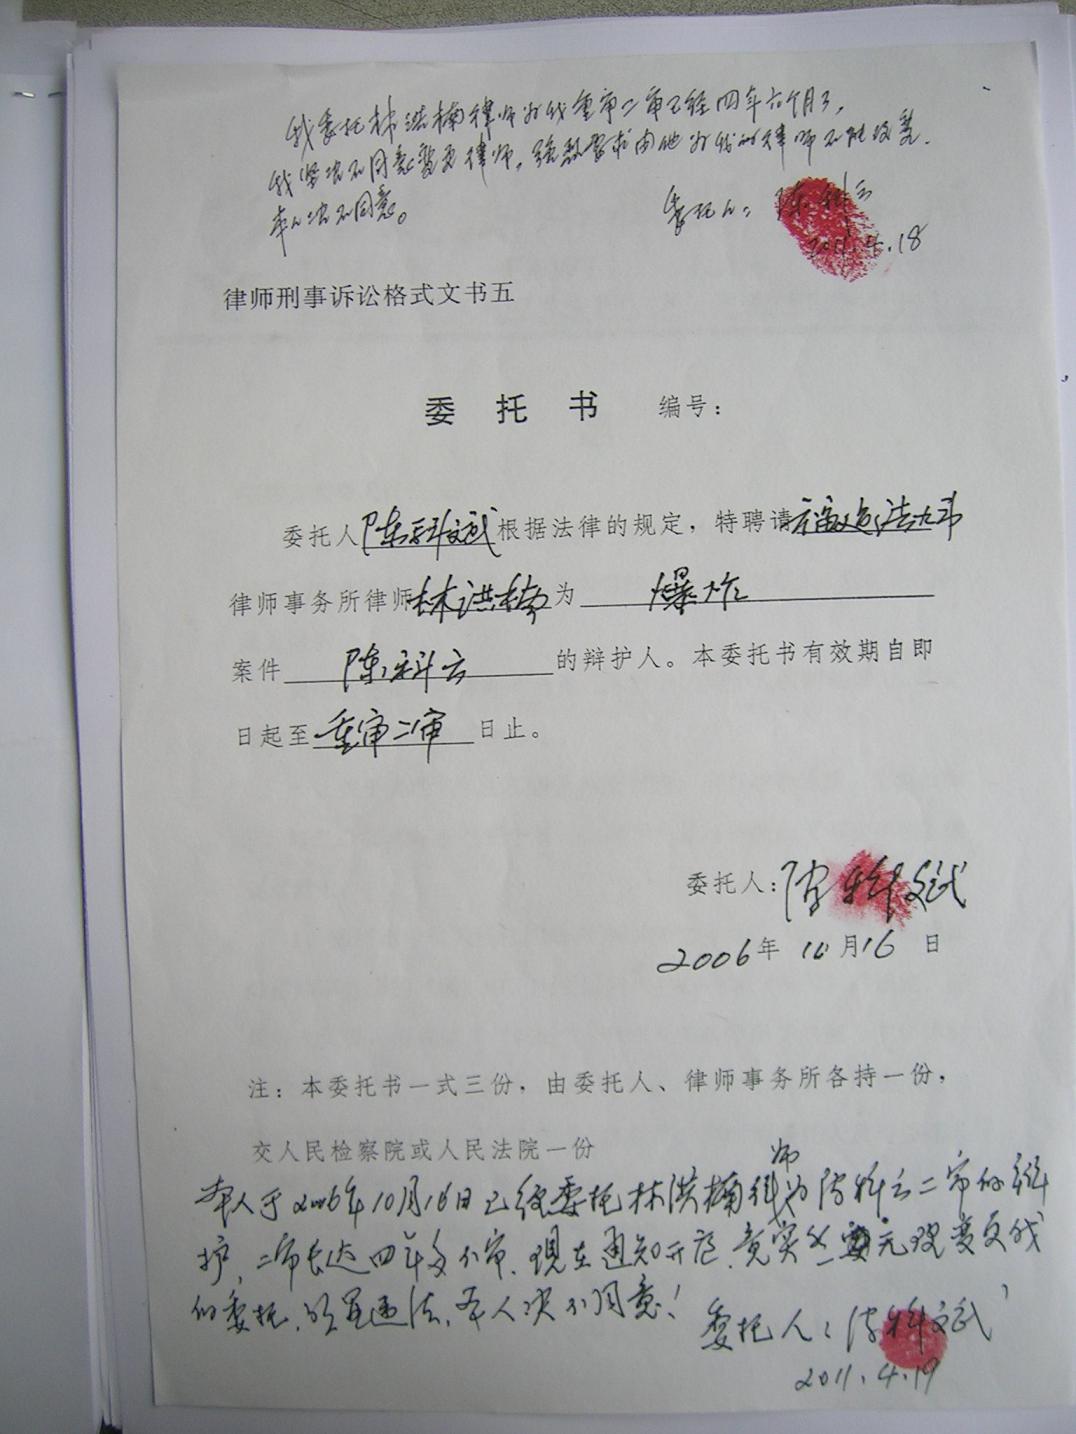 我委托林洪楠律师为我重审二审已经四年六个月了，
我坚决不同意变更律师。强烈要求由他为我的律师不能改变.
本人决不同意。
委托人: 陈科云
2011.4.18
律师刑事诉讼格式文书五
委 托 书 编号：
委托人陈科斌根据法律的规定，特聘请福建法炜
律师事务所律师林洪楠为 爆炸
案件 陈科云 的辩护人。本委托书有效期自即
日起至重审二审日止。
委托人：陈科斌
2006年 10月16 日
注：本委托书一式三份，由委托人、律师事务所各持一份，
交人民检察院或人民法院一份
本人于2006年10月16日已经委托林洪楠律师为陈科云二审的辩
护，二审长达四年多不审，现在通知开庭，竟突然无理变更我
的委托，均是违法，本人决不同意！
委托人：陈科斌
2011.4.19